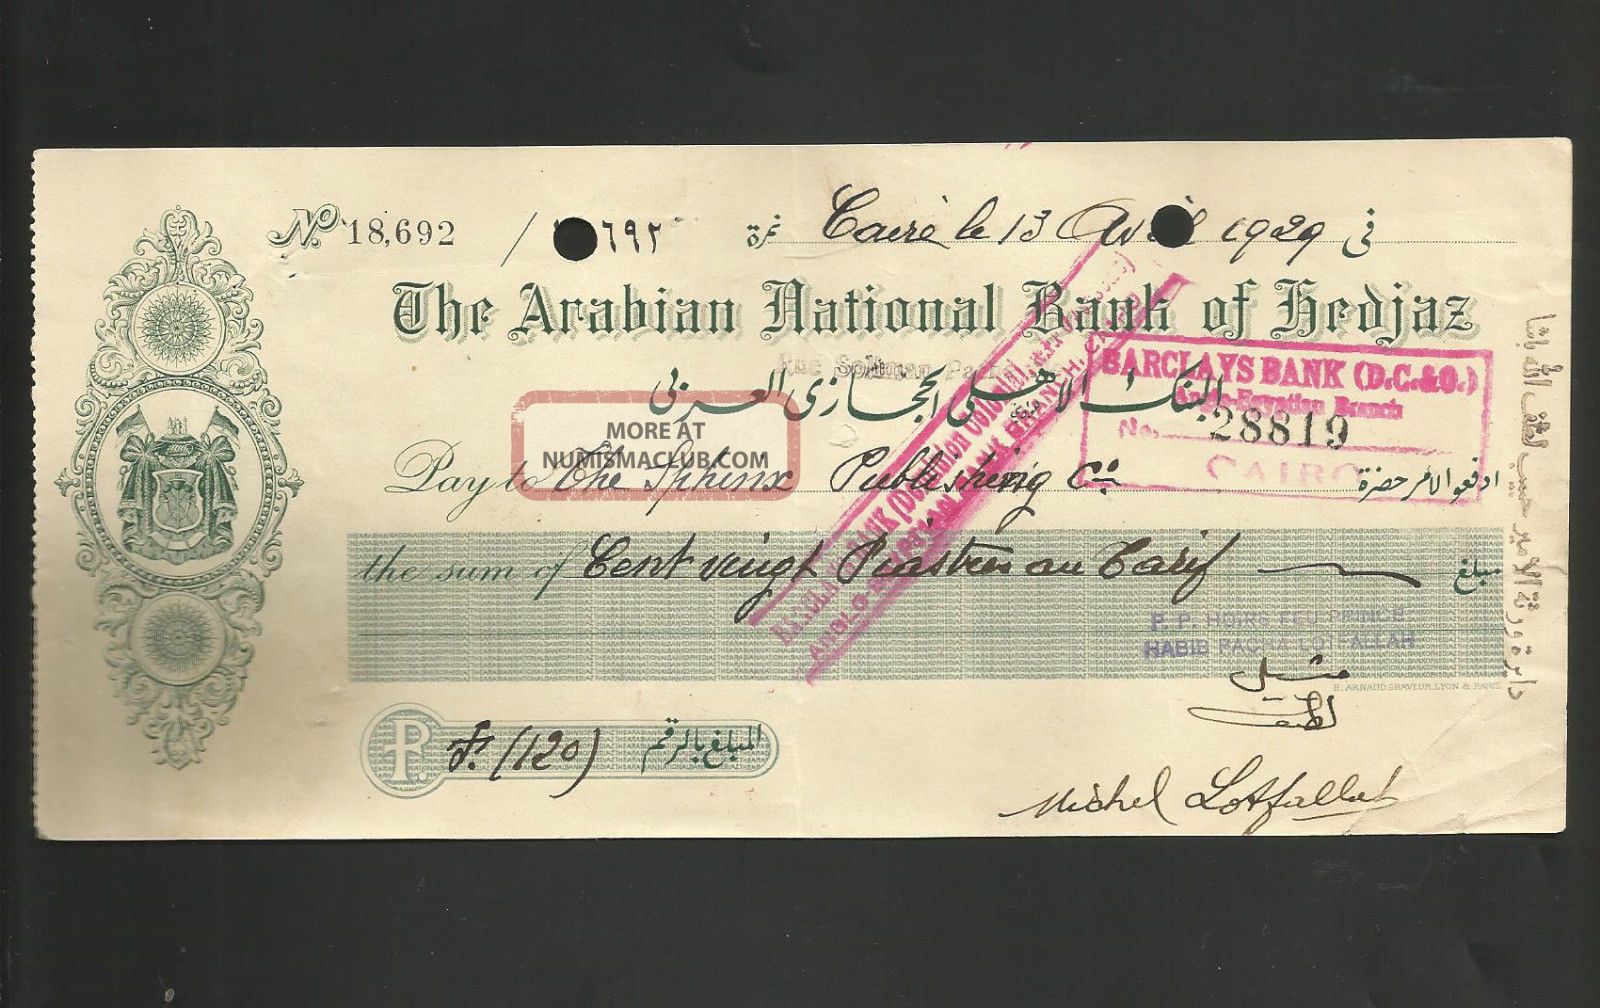 No. 18,692 / ٦٩٢ نمرة Caire le 13 Avril 1929 في
The Arabian National Bank of Hedjaz
Rue Soliman Pacha
البنك الاهلي الحجازي العربي
BARCLAYS BANK (D.C.&O.)
Anglo-Egyptian Branch
No. 28819
CAIRO
MORE AT
NUMISMACLUB.COM
Pay to The Sphinx Publishing Co ادفعوا لامر حضرة
BARCLAYS BANK (Dominion Colonial
ANGLO-EGYPTIAN BANK BRANCH, CAIRO
the sum of Cent vingt Piastres au Tarif مبلغ
P. P. HOIRS FEU PRINCE
HABIB PACHA LOTFALLAH
ميشيل
لطف الله
B. ARNAUD, GRAVEUR, LYON & PARIS
P. P. (120) المبلغ بالرقم
Michel Lotfallah
دايرة ورثة الامير حبيب لطف الله باشا